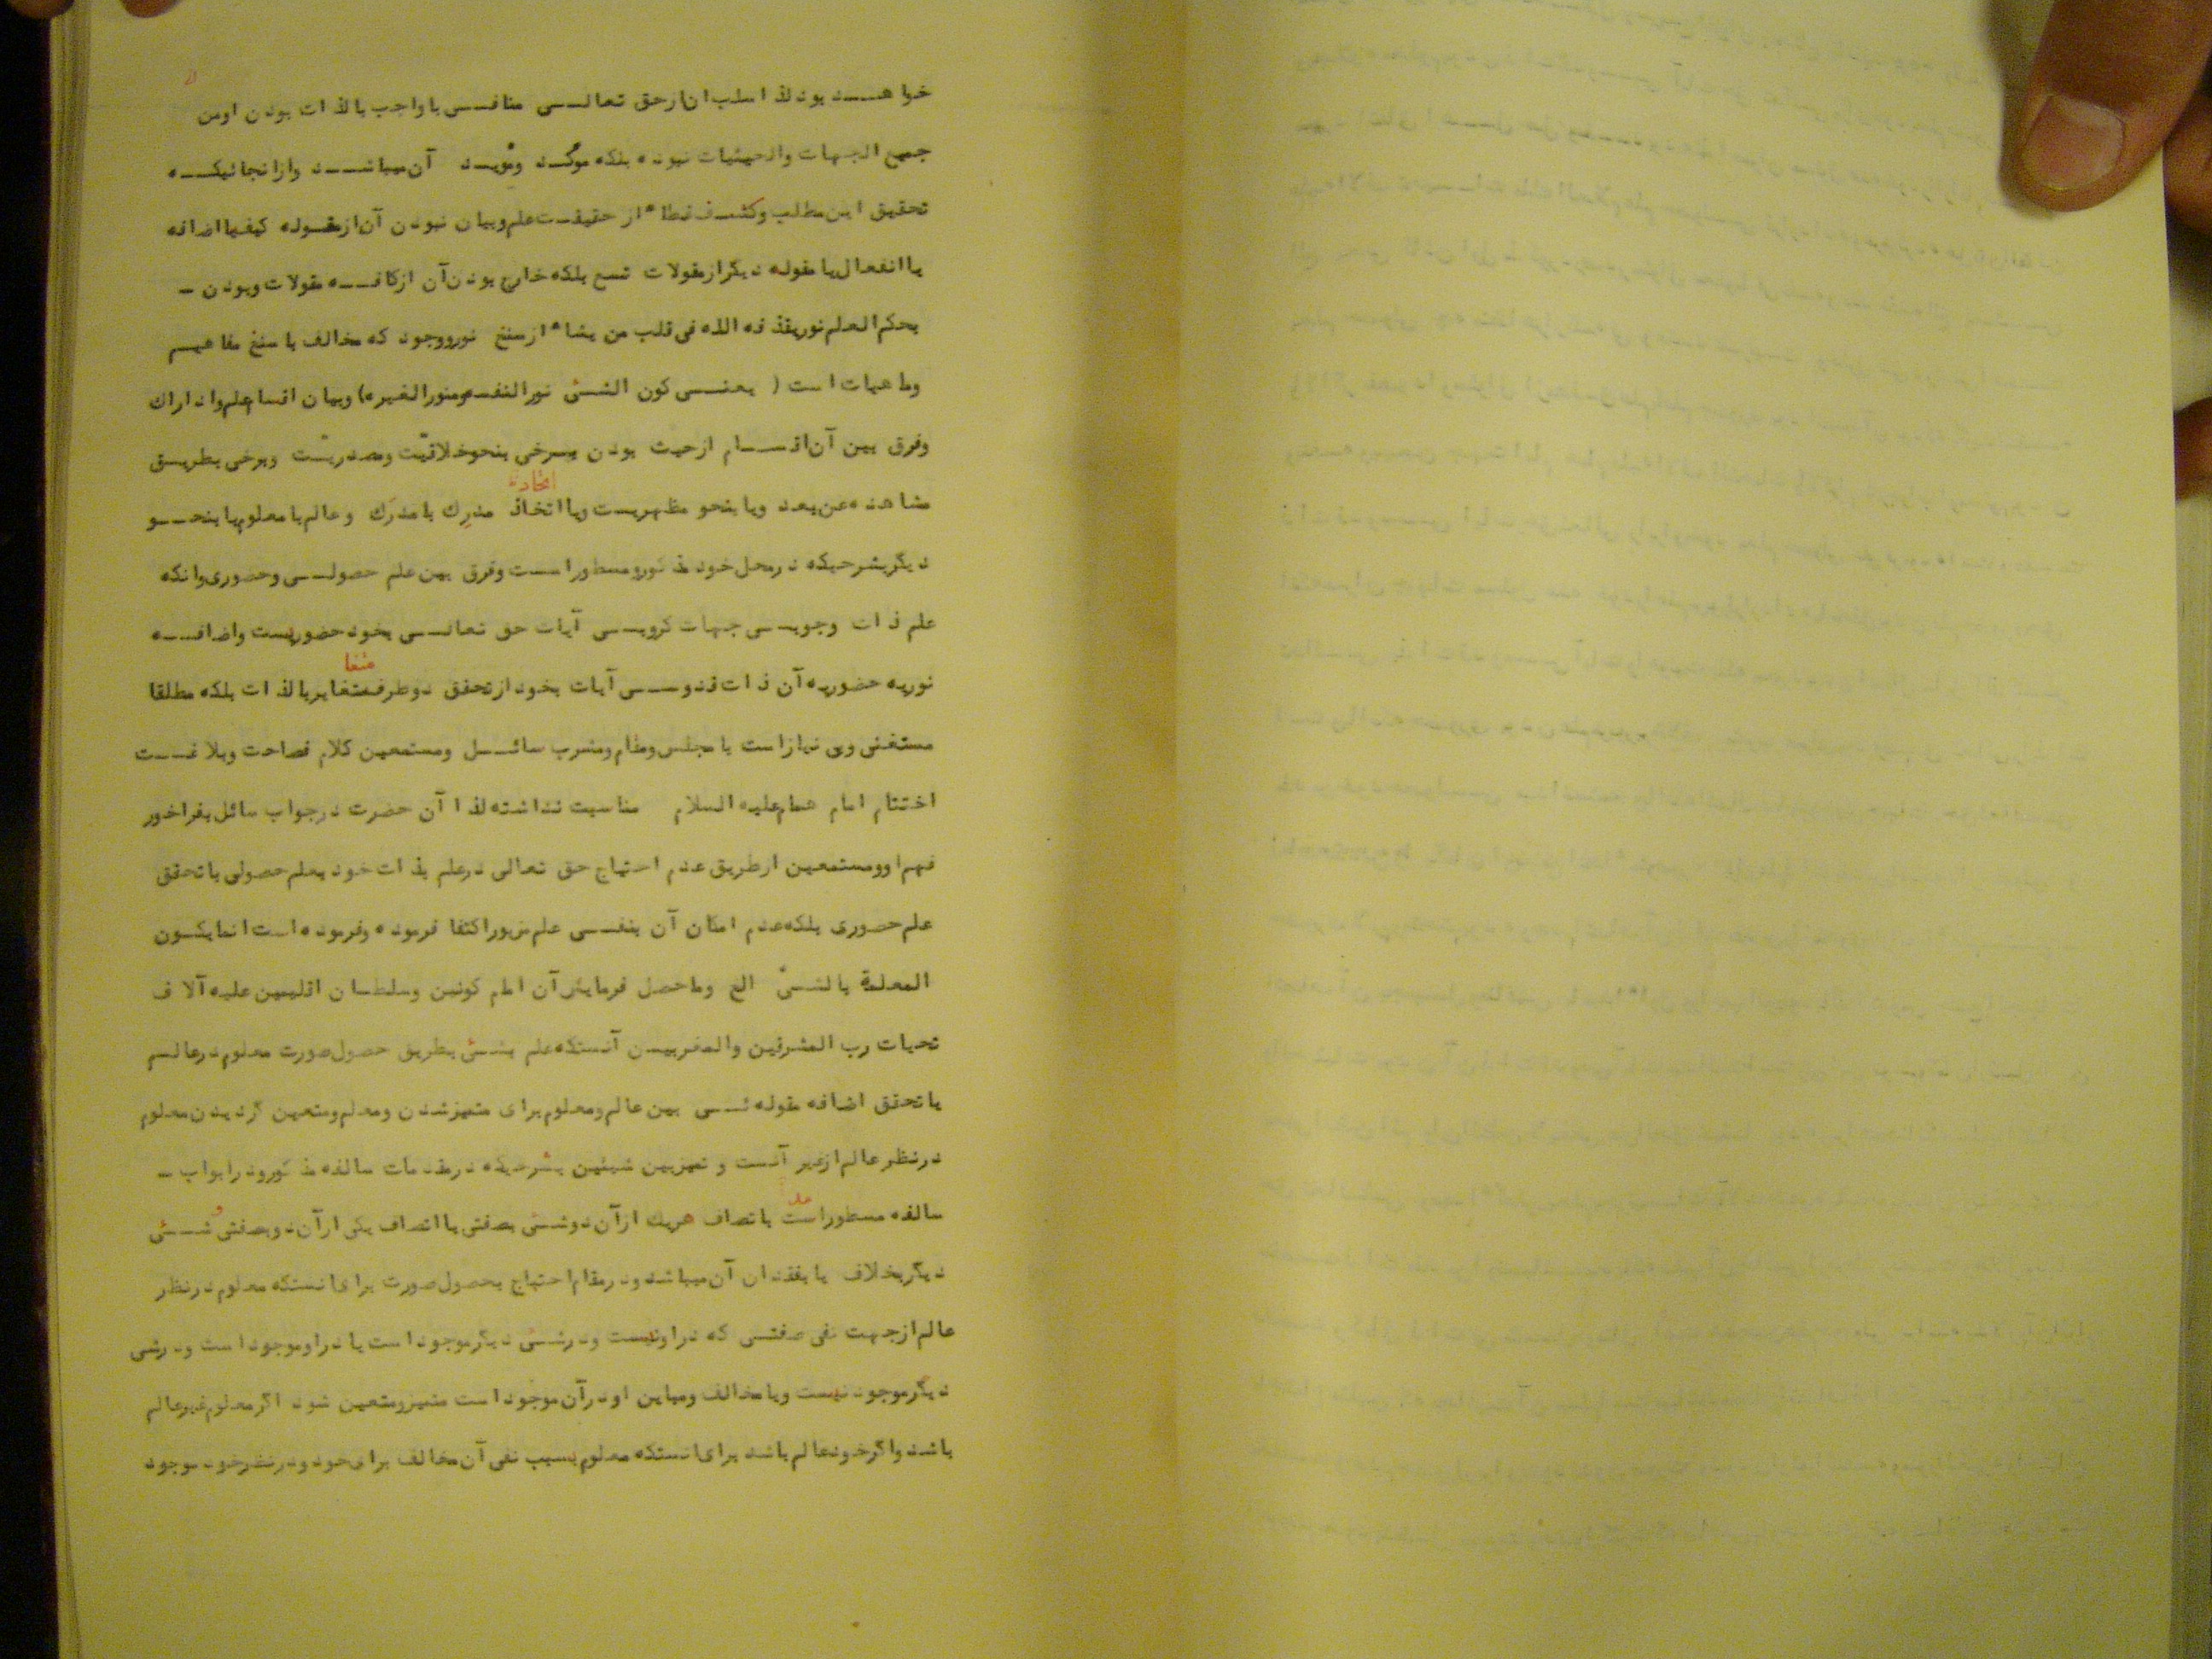 خواهد بود لذا سلب ان از حق تعالی منافی با واجب بالذات بودن او من
جمیع الجهات والحیثیات نبوده بلکه موکد ومؤید آن میباشد وازانجائیکه
تحقیق این مطلب وکشف غطاء از حقیقت علم وبیان نبودن آن از مقوله کیف یا اضافه
یا انفعال یا مقوله دیگر از مقولات تسع بلکه خارج بودن آن از کافه مقولات وبودن –
بحکم العلم نور یقذفه الله فی قلب من یشاء از سنخ نور ووجود که مخالف با سنخ مفاهیم
وماهیات است ( یعنی کون الشئ نورالنفسه ومنورالغیره) وبیان اقسام علم وادراك
وفرق بین آن اقسام از حیث بودن برخی بنحو خلاقیّت ومصدریّت وبرخی بطریق
اتحاد
مشاهده عن بعد ویا بنحو مظهریت ویا اتخاذ مدرِك با مدرَك وعالم با معلوم یا بنحو
دیگر بشرحیکه در محل خود مذکور ومسطور است وفرق بین علم حصولی وحضوری وانکه
علم ذات وجوبی جهات کروبی آیات حق تعالی بخود حضوریست واضافه
متغا
نوریه حضوریه آن ذات قدوسی آیات بخود از تحقق دو طرف متغایر بالذات بلکه مطلقا
مستغنی وبی نیاز است با مجلس ومقام ومشرب سائل ومستمعین کلام فصاحت وبلاغت
اختتام امام همام علیه السلام مناسبت نداشته لذا آن حضرت در جواب سائل بفراخور
فهم او ومستمعین از طریق عدم احتیاج حق تعالی در علم بذات خود بعلم حصولی با تحقق
علم حصوری بلکه عدم امکان آن بنفی علم مزبور اکتفا فرموده وفرموده است انما یکون
المعلمة بالشئ الخ وماحصل فرمایش آن امام کونین وسلطان اقلیمین علیه آلاف
تحیات رب المشرقین والمغربین آنستکه علم بشئ بطریق حصول صورت معلوم در عالم
یا تحقق اضافه مقوله ئی بین عالم ومعلوم برای متمیز شدن ومعلم ومتعین گردیدن معلوم
در نظر عالم از غیر آنست و تمیز بین شیئین بشرحیکه در مقدمات سالفه مذکور ودر ابواب –
سالفه مسطور است باتصاف هریك از آن دو شئ بصفتی یا اتصاف یکی از آن دو بصفتی و شئی
دیگر بخلاف یا بفقدان آن میباشد ودر مقام احتیاج بحصول صورت برای انستکه معلوم در نظر
عالم از جهت نفی صفتی که در او نیست ودر شئ دیگر موجود است یا در او موجود است ودر شی
دیگر موجود نیست ویا مخالف ومباین او در آن موجود است متمیز ومتعین شود اگر معلوم غیر عالم
باشد واگر خود عالم باشد برای انستکه معلوم بسبب نفی آن مخالف برای خود ودر نظر خود موجود